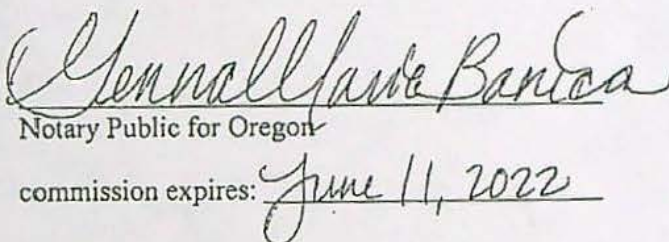 Marie Banica
Notary Public for Oregon
commission expires: June 11, 2022